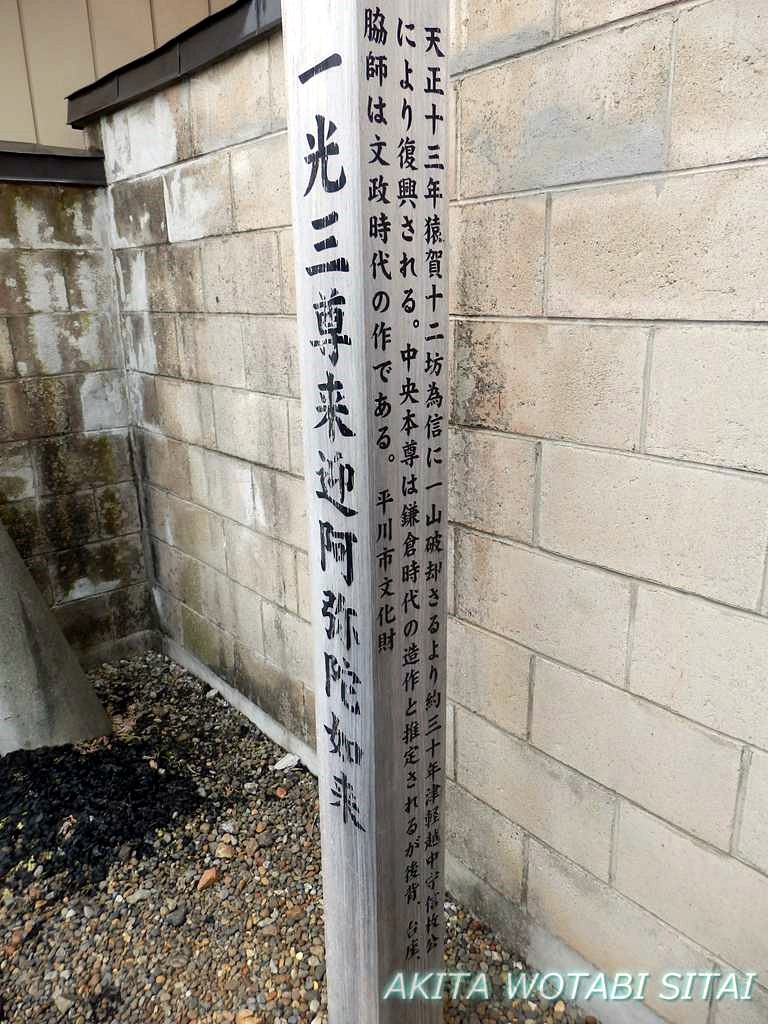 一光三尊来迎阿弥陀如来
天正十三年猿賀十二坊為信に一山破却さるより約三十年津軽越中守信枚公
により復興される。中央本尊は鎌倉時代の造作と推定されるが後背、台座、
脇師は文政時代の作である。 平川市文化財
AKITA WOTABI SITAI